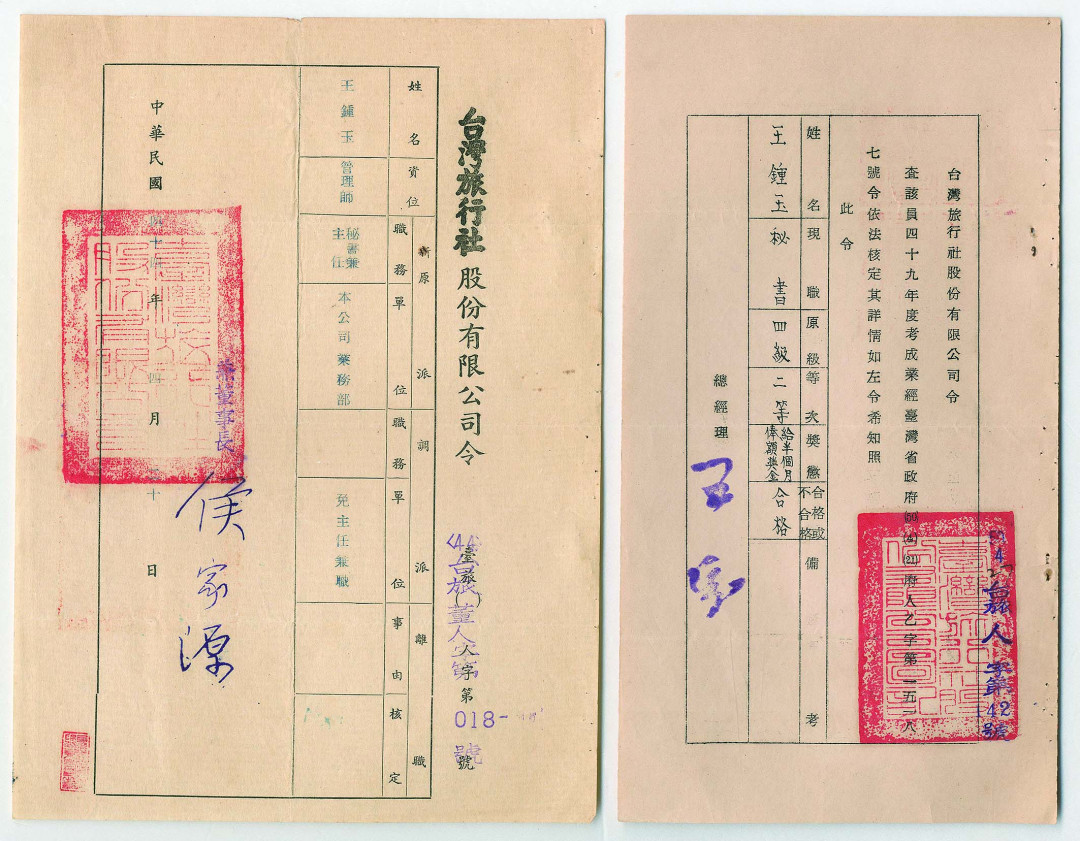 台灣旅行社股份有限公司令
臺旅人字第018-號
姓名
資位
新
原
派
調
派
離
職
職務
單位
職務
單位
事由
核定
王鍾玉
管理師
秘書兼
主任
本公司業務部
免主任兼職
中華民國
年四月
日
兼董事長
侯家源
台灣旅行社股份有限公司令
查該員四十九年度考成業經臺灣省政府(50)(4)(21)府人乙字第一五一八
七號令依法核定其詳情如左令希知照
此令
人字第142號
姓名
現職
原級
等次
獎懲
合格或
不合格
備考
王鍾玉
秘書
四級
二等
給半個月
俸額獎金
合格
總經理